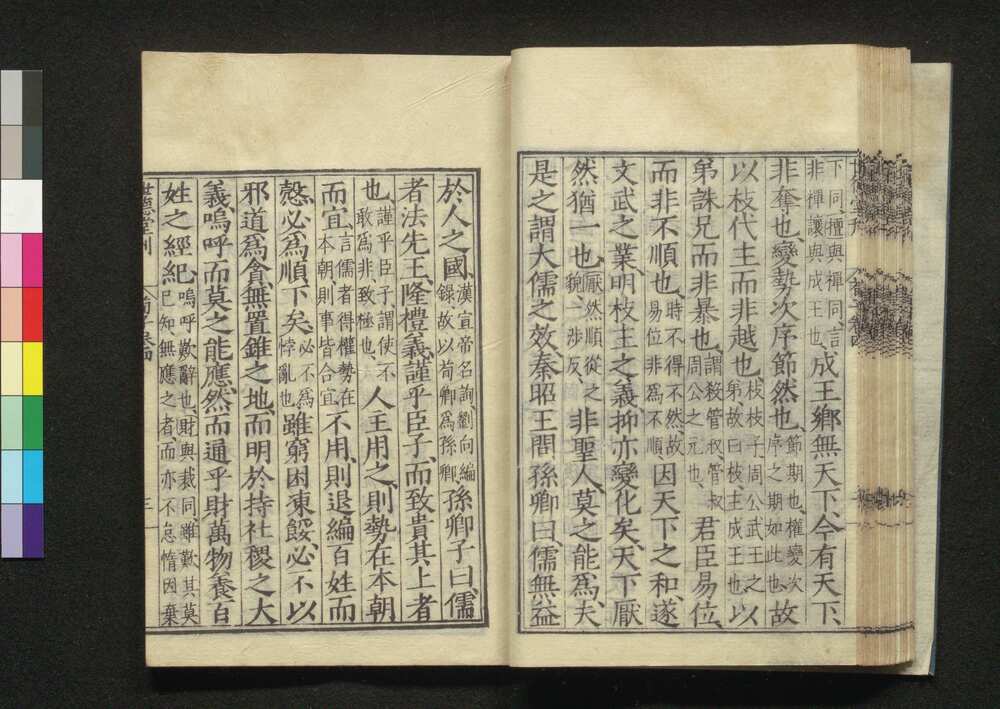 下同擅與禪同言
非禪讓與成王也、
成王鄉無天下、今有天下、
非奪也、變勢次序節然也、
節期也、權變次
序之期如此也
故
以枝代主而非越也、
枝枝子周公武王之
弟故曰枝主成王也
以
弟誅兄而非暴也、
謂殺管叔、管叔
周公之兄也
君臣易位、
而非不順也、
時不得不然、故
易位非爲不順
因天下之和、遂
文武之業、明枝主之義、抑亦變化矣、天下厭
然猶一也、
厭然順從之
貌、一涉反
非聖人、莫之能爲、夫
是之謂大儒之效、秦昭王問孫卿曰、儒無益
於人之國、
漢宣帝名詢、劉向編
録故以荀卿爲孫卿
孫卿子曰、儒
者法先王、隆禮義、謹乎臣子、而致貴其上者
也、
謹乎臣子謂使不
敢爲非致極也、
人主用之、則勢在本朝
而宜、
言儒者得權勢在
本朝、則事皆合宜
不用、則退編百姓而
慤、必爲順下矣、
必不爲
悖亂也
雖窮困凍餧、必不以
邪道爲貪、無置錐之地、而明於持社稷之大
義、嗚呼而莫之能應、然而通乎財萬物養百
姓之經紀、
嗚呼歎辭也、財與裁同、雖歎其莫
已知無應之者、而亦不怠惰因棄
世德堂刊
荀子卷四
三